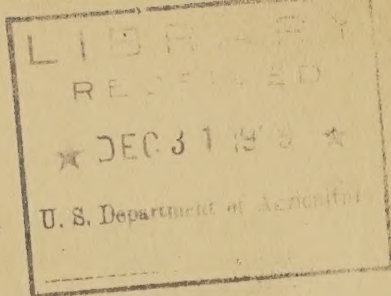 LIBRARY
RECEIVED
★ DEC 31 ★
U. S. Department of Agricultur